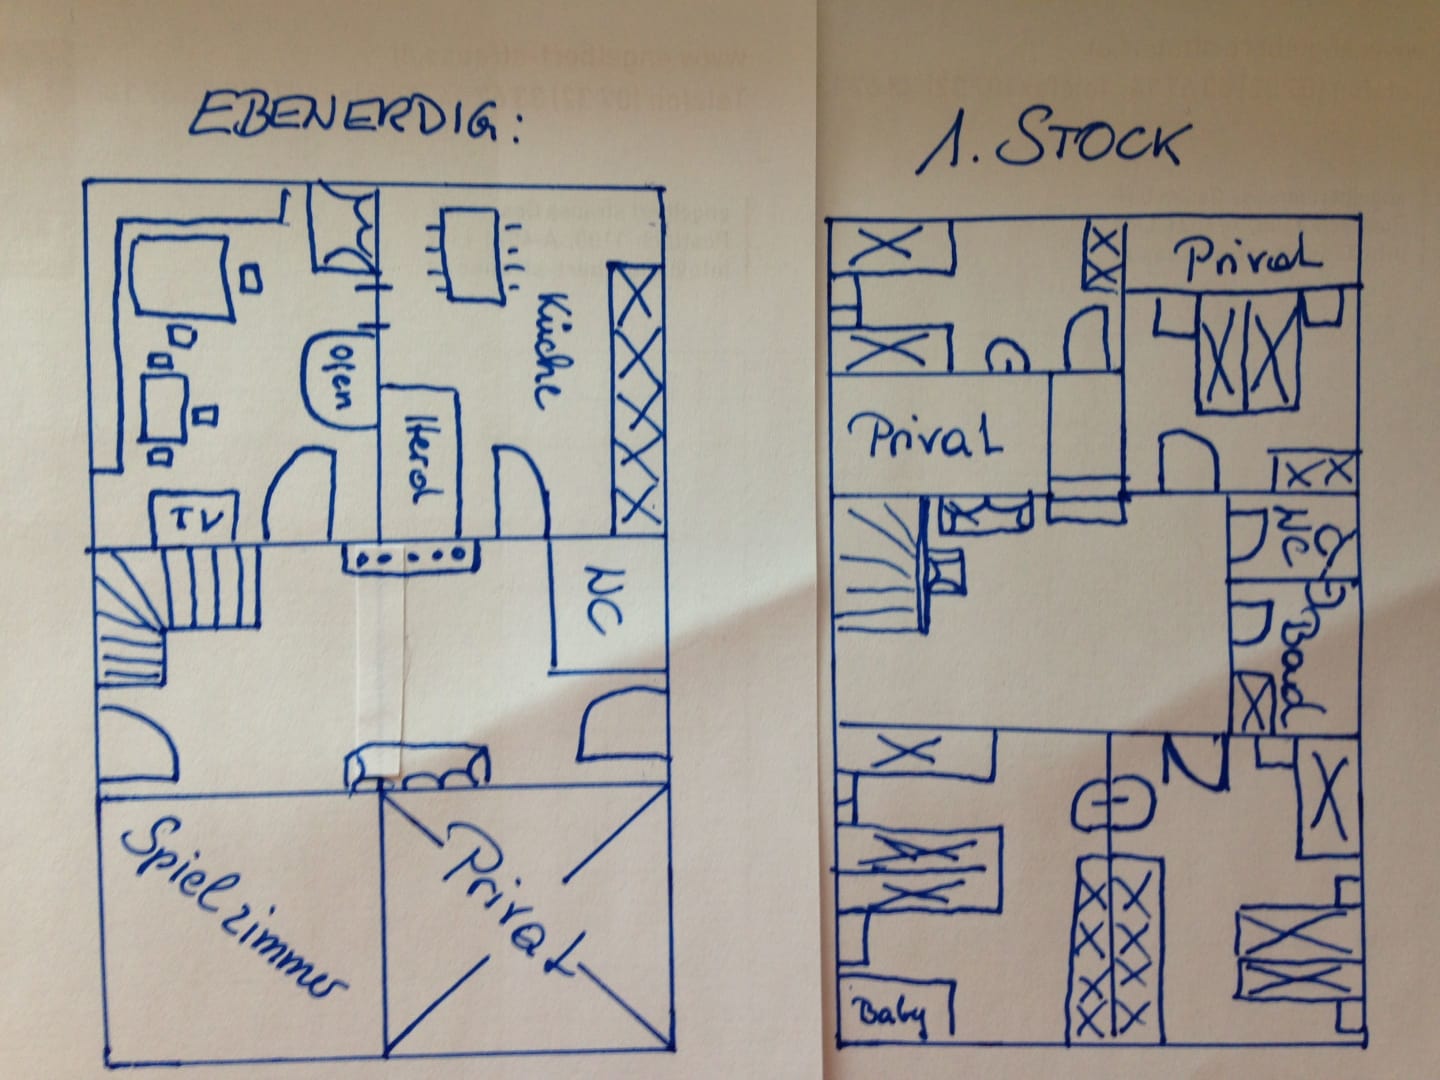 EBENERDIG:
Küche
Ofen
Herd
TV
WC
Spielzimmer
Privat
1. STOCK
Privat
Privat
WC
Bad
Baby